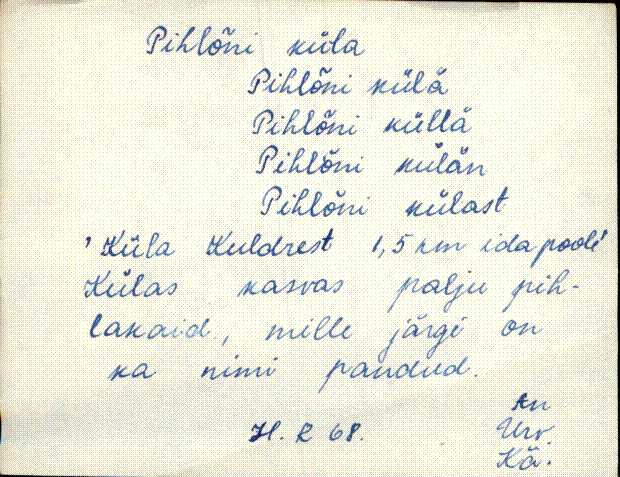 Pihlõni küla
Pihlõni külä
Pihlõni küllä
Pihlõni külän
Pihlõni külast
'Küla Kuldrest 1,5 km ida pool'
Külas kasvas palju pih-
lakaid, mille järgi on
ka nimi pandud.
H. R 68.
Urv.
Kä.